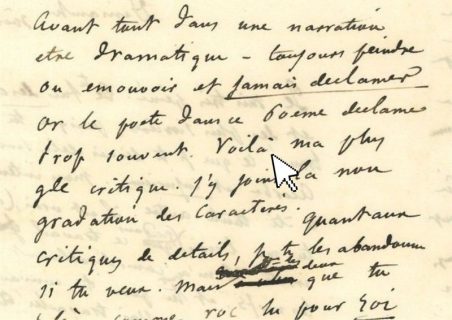 avant tout dans une narration
etre dramatique - toujours peindre
ou emouvoir et jamais declamer
or le poete dans ce Poeme declame
trop souvent. Voilà ma plus
gde critique. j'y joins la non
gradation des caracteres.
quant aux
critiques de details, je te les abandonne
si tu veux. Mais deux que tu
comme roc tu pour soi